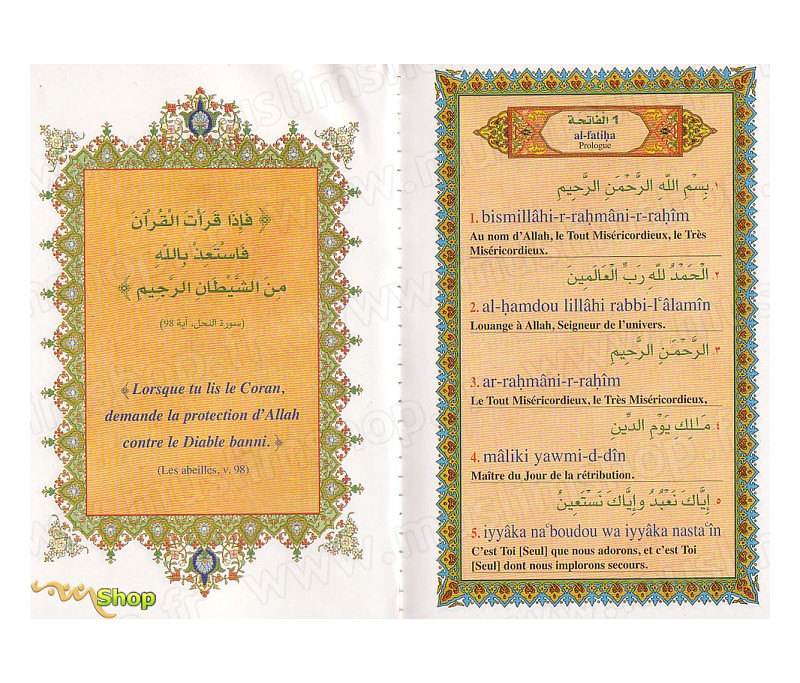 ﴿ فَإِذَا قَرَأْتَ الْقُرْآنَ
فَاسْتَعِذْ بِاللَّهِ
مِنَ الشَّيْطَانِ الرَّجِيمِ ﴾
(سورة النحل، آية 98)
﴾ Lorsque tu lis le Coran,
demande la protection d’Allah
contre le Diable banni. ﴿
(Les abeilles, v. 98)
1 الفاتحة
al-fatiḥa
Prologue
١. بِسْمِ اللَّهِ الرَّحْمَنِ الرَّحِيمِ
1. bismillâhi-r-raḥmâni-r-raḥîm
Au nom d’Allah, le Tout Miséricordieux, le Très
Miséricordieux.
٢. الْحَمْدُ للَّهِ رَبِّ الْعَالَمِينَ
2. al-ḥamdou lillâhi rabbi-lʿâlamîn
Louange à Allah, Seigneur de l’univers.
٣. الرَّحْمَـٰنِ الرَّحِيمِ
3. ar-raḥmâni-r-raḥîm
Le Tout Miséricordieux, le Très Miséricordieux,
٤. مَـٰلِكِ يَوْمِ الدِّينِ
4. mâliki yawmi-d-dîn
Maître du Jour de la rétribution.
٥. إِيَّاكَ نَعْبُدُ وإِيَّاكَ نَسْتَعِينُ
5. iyyâka naʿboudou wa iyyâka nastaʿîn
C’est Toi [Seul] que nous adorons, et c’est Toi
[Seul] dont nous implorons secours.
Shop